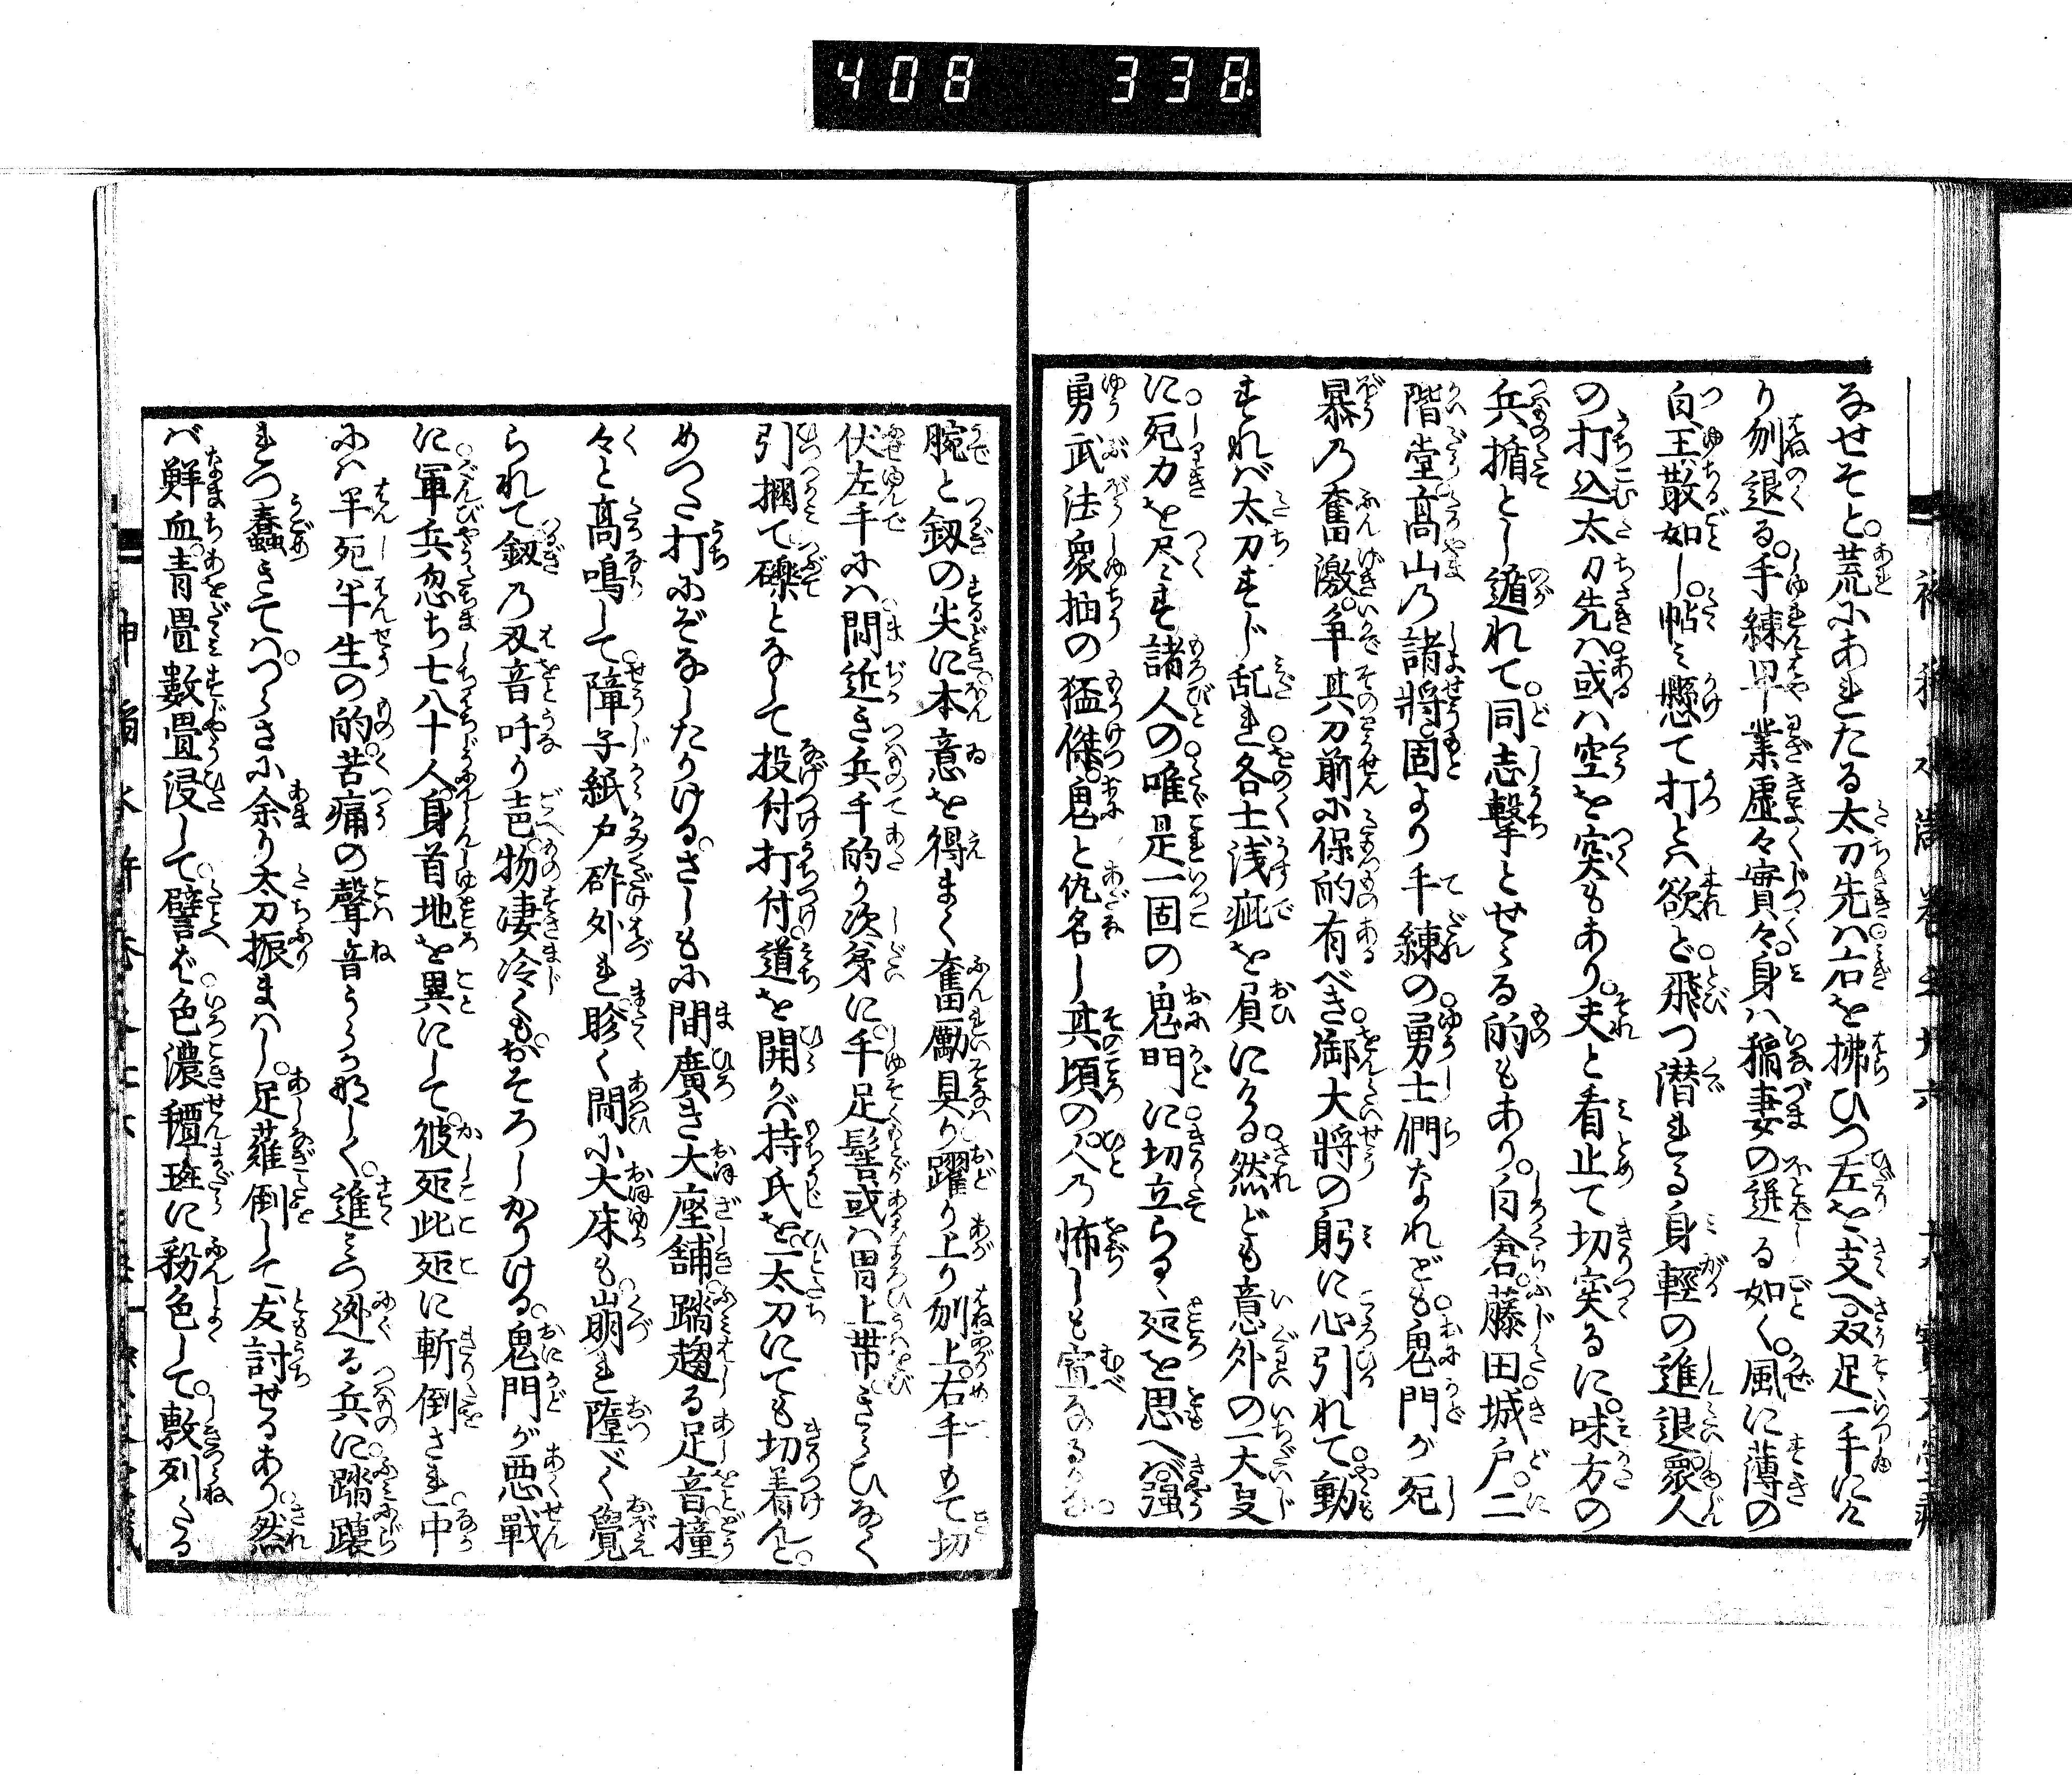 408 338
なせそと。荒にあれたる太刀先ハ右を拂ひつ左を支へ双足一手に
り刎退る。手練早業虚々實々。身ハ稲妻の遶る如く。風に薄の
白玉散如し。帖ミ懸て打とハ欲ど飛つ潜れる身輕の進退衆人
の打込太刀先ハ或ハ空を突もあり。夫と看止て切突るに。味方の
兵楯とし遁れて。同志撃とせらる的もあり。白倉。藤田。城戸。二
階堂髙山乃諸將固より手練の勇士們なれども鬼門が死
暴乃奮激。争其刀前に保的有べき。御大將の躬に心引れて。動
すれバ太刀すじ乱れ各士浅疵を屓にける然ども意外の一大叓
に死力を尽す諸人の唯是一固の鬼門に切立らるゝ処を思へバ。強
勇武法衆抽の猛傑。鬼と仇名し其頃の人乃怖しも宜なるかな。
腕と釼の尖に本意を得まく奮勵具り躍り上り刎上。右手もて切
伏左手にハ間近き兵手的り次第に。手足髻或ハ冑上帯。きらひなく
引摑て礫となして投付打付。道を開かバ持氏を一太刀にても切着んと。
めつた打にぞなしたりける。さしもに間廣き大座舗。踏趨る足音撞
々と髙鳴して。障子紙戸砕外れ。眕く間に大床も崩れ墮べく覺
られて釼乃刄音吽り声。物凄冷くも。おそろしかりける。鬼門が悪戰
に軍兵忽ち七八十人。身首地を異にして。彼処此処に斬倒され。中
にハ半死半生の的。苦痛の聲音うら悲しく。進ミつ迯る兵に踏躟
れつ蠢きてハ。つらさに余り太刀振まハし。足薙倒して友討せるあり。然
バ鮮血青畳數畳浸して。譬ば。色濃氊斑に粉色して。敷列たる